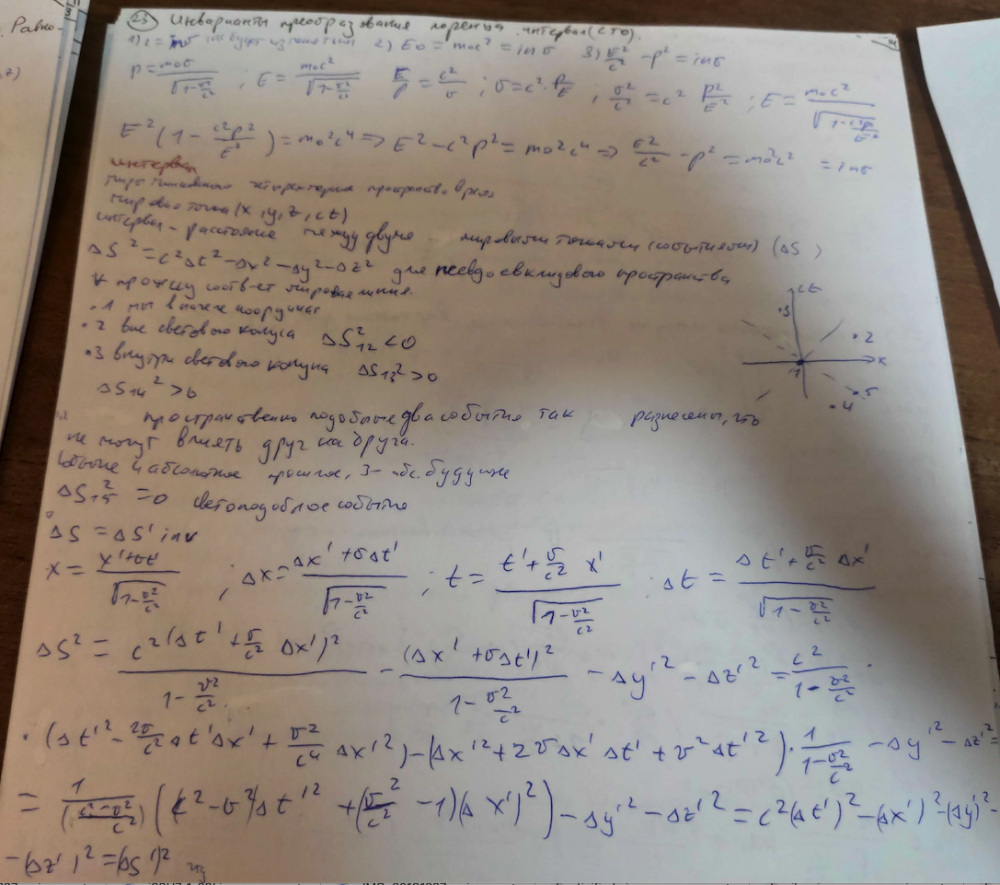 Равно-
23 Инварианты преобразования лоренца интервал (СТО).
1) c = inv 2) E₀ = m₀c² = inv 3) E²/c² - p² = inv
P = m₀v/√(1-v²/c²) ; E = m₀c²/√(1-v²/c²) E/p = c²/v ; v = c²·P/E ; v²/c² = c² P²/E² ; E = m₀c²/√(1-c²p²/E²)
E²(1 - c²p²/E²) = m₀²c⁴ => E² - c²p² = m₀²c⁴ => E²/c² - p² = m₀²c² = inv
интервал
пространство время
мировая точка (x, y, z, ct)
интервал - расстояние между двумя мировыми точками (событиями) (ΔS)
ΔS² = c²Δt² - Δx² - Δy² - Δz² для псевдоевклидового пространства
мировая линия.
• 1 мы в начале координат
• 2 вне светового конуса ΔS₁₂² < 0
• 3 внутри светового конуса ΔS₁₃² > 0
ΔS₁₄² > 0
пространственно подобные два события так разнесены, что
не могут влиять друг на друга.
событие 4 абсолютное прошлое, 3 - абс. будущее
ΔS₁₅² = 0 светоподобное событие
ct
•3
•2
x
1
•5
•4
ΔS = ΔS' inv
x = (x'+vt')/√(1-v²/c²) ; Δx = (Δx'+vΔt')/√(1-v²/c²) ; t = (t'+v/c² x')/√(1-v²/c²) ; Δt = (Δt'+v/c² Δx')/√(1-v²/c²)
ΔS² = c²(Δt'+v/c² Δx')²/(1-v²/c²) - (Δx'+vΔt')²/(1-v²/c²) - Δy'² - Δz'² = c²/(1-v²/c²) ·
· (Δt'² - 2v/c² Δt'Δx' + v²/c⁴ Δx'²) - (Δx'² + 2vΔx'Δt' + v²Δt'²) · 1/(1-v²/c²) - Δy'² - Δz'² =
= ((c²-v²)Δt'² + (v²/c² - 1)(Δx')²) - Δy'² - Δz'² = c²(Δt')² - (Δx')² - (Δy')² -
- (Δz')² = (ΔS')²